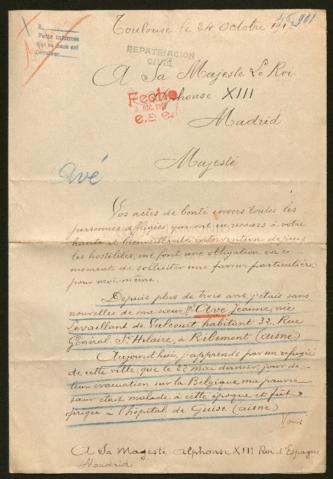 45.901
Toulouse le 24 Octobre 191
Prière instamment
REPATRIACION
CIVIL
A Sa Majesté Le Roi
Alphonse XIII
Fecho
e.s.e.
Madrid
Avé
Majesté
Vos actes de bonté envers toutes les
personnes affligées qui ont eu recours à votre
haute et bienveillante intervention depuis
les hostilités, me font une obligation en ce
moment de solliciter une faveur particulière
pour moi même.
Depuis plus de trois ans, j'étais sans
nouvelles de ma sœur Avé Jeanne, née
Levaillant de Valcourt habitant 32, Rue
Général St Hilaire, à Ribemont (aisne)
Aujourd'hui, j'apprends par un réfugié
de cette ville, que le 22 mai dernier, jour de
leur évacuation sur la Belgique, ma pauvre
sœur étant malade à cette époque et fût
dirigée à l'hôpital de Guise (aisne)
Vous
A Sa Magesté alphonse XIII Roi d'Espagne
Madrid